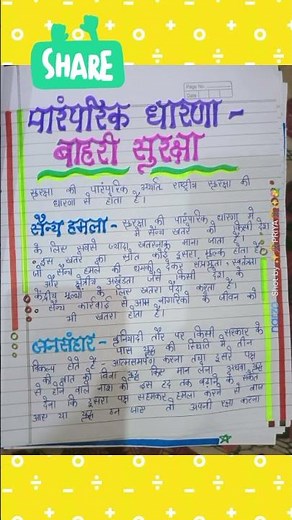 SHARE
Page No.
Date
पारंपरिक धारणा -
बाहरी सुरक्षा
सुरक्षा की पारंपरिक अर्थात राष्ट्रीय सुरक्षा की
धारणा से होता है।
सैन्य हमला - सुरक्षा की पारंपरिक धारणा में
सैन्य खतरे को किसी देश
के लिए सबसे ज्यादा खतरनाक माना जाता है।
इस खतरे का स्रोत कोई दूसरा मुल्क होता है
जो सैन्य हमले की धमकी देकर संप्रभुता, स्वतंत्रता
और क्षेत्रीय अखण्डता जैसे किसी देश के
केंद्रीय मूल्यों के लिए खतरा पैदा करता है।
सैन्य कार्रवाई से आम नागरिकों के जीवन को
भी खतरा होता है।
जनसंहार - बुनियादी तौर पर किसी सरकार के
पास युद्ध की स्थिति में तीन
विकल्प होते हैं आत्मसमर्पण करना तथा दूसरे पक्ष
की बात को बिना युद्ध किए मान लेना अथवा युद्ध
से होने वाले नाश को इस हद तक बढ़ाने के संकेत
देना कि दूसरा पक्ष सहमकर हमला करने से बाज
आए या युद्ध ठन जाए तो अपनी रक्षा करना
Shot by
PRIYA